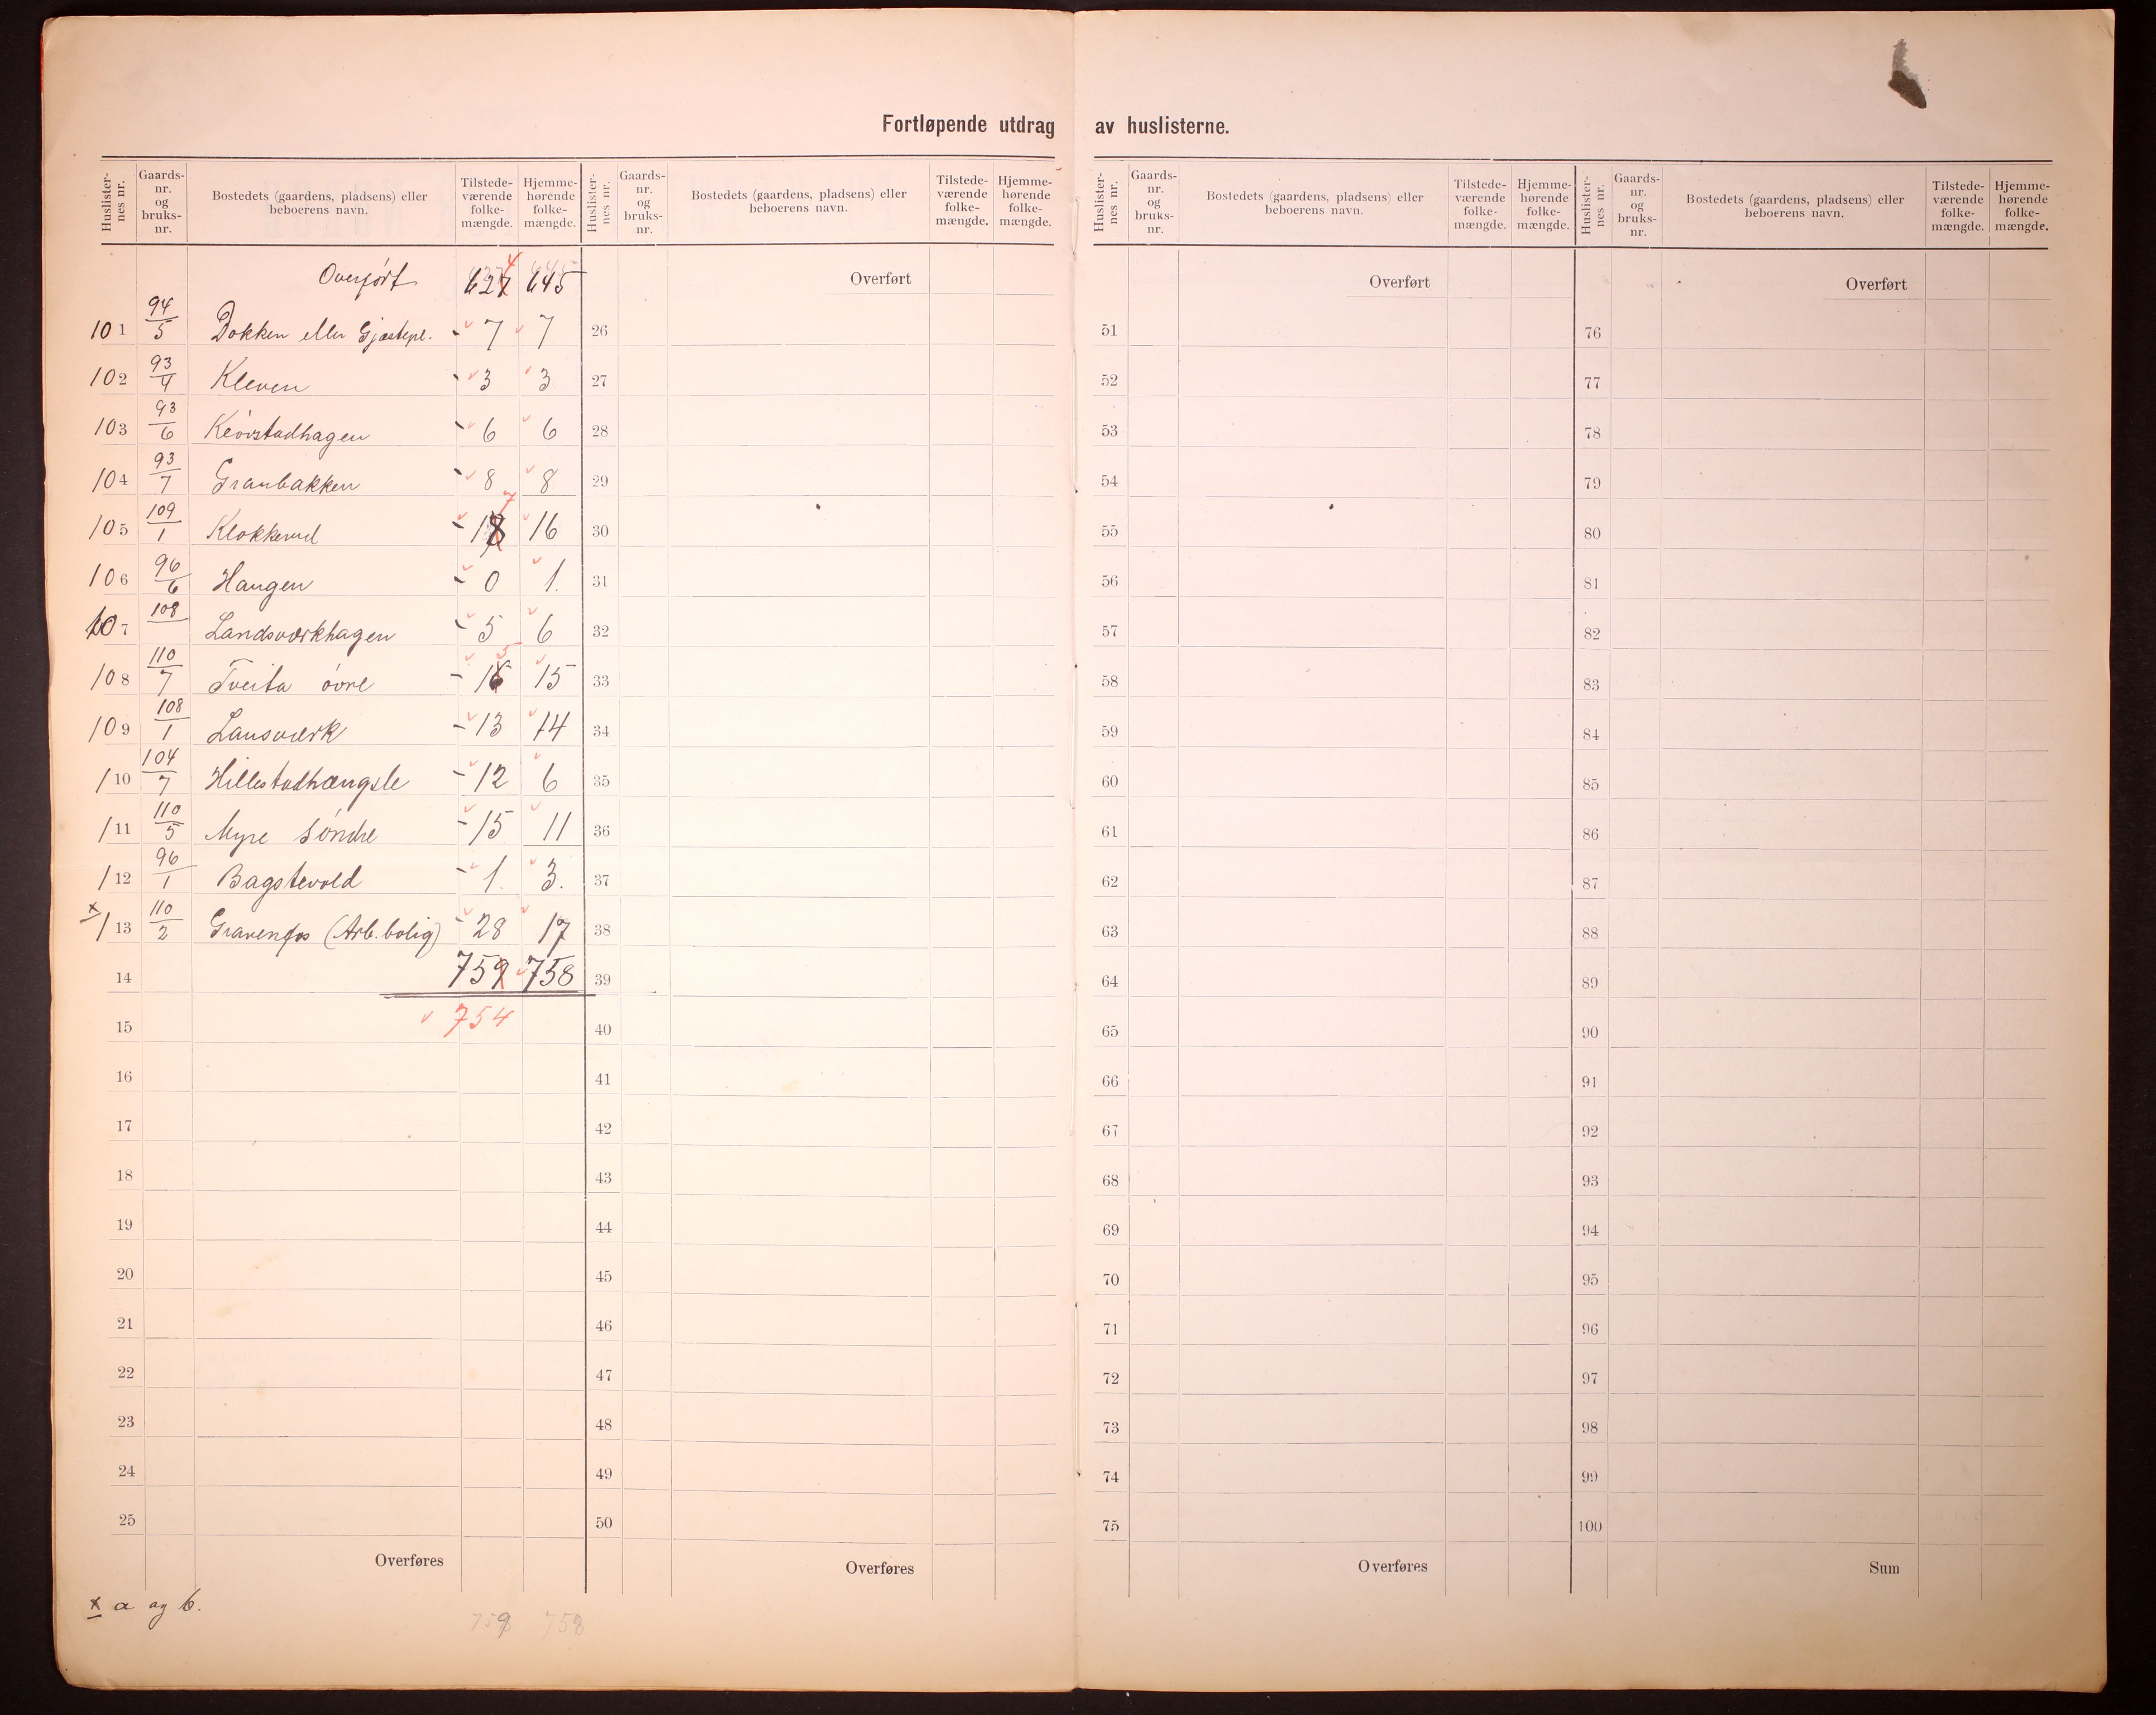 Fortløpende utdrag av huslisterne.
Huslisternes nr. Gaardsnr. og bruksnr. Bostedets (gaardens, pladsens) eller beboerens navn. Tilstedeværende folkemængde. Hjemmehørende folkemængde. Huslisternes nr. Gaardsnr. og bruksnr. Bostedets (gaardens, pladsens) eller beboerens navn. Tilstedeværende folkemængde. Hjemmehørende folkemængde.
Overført 627 4 645
101 94/5 Dokken eller Gjestepl. 7 7
102 93/4 Kleven 3 3
103 93/6 Keórstadhagen 6 6
104 93/7 Granbakken 8 8
105 109/1 Klokkerud 18 7 16
106 96/6 Haugen 0 1.
107 108 Landsværkhagen 5 6
108 110/7 Tveita óvre 16 5 15
109 108/1 Lansværk 13 14
110 104/7 Hillestadhængsle 12 6
111 110/5 Myre Söndre 15 11
112 96/1 Bagstevold 1. 3.
x 113 110/2 Gravenfos (Arb. bolig) 28 17
14 759 758
15 754
16
17
18
19
20
21
22
23
24
25
Overføres
x a og b.
759 758
Overført
26
27
28
29
30
31
32
33
34
35
36
37
38
39
40
41
42
43
44
45
46
47
48
49
50
Overføres
Huslisternes nr. Gaardsnr. og bruksnr. Bostedets (gaardens, pladsens) eller beboerens navn. Tilstedeværende folkemængde. Hjemmehørende folkemængde. Huslisternes nr. Gaardsnr. og bruksnr. Bostedets (gaardens, pladsens) eller beboerens navn. Tilstedeværende folkemængde. Hjemmehørende folkemængde.
Overført
51
52
53
54
55
56
57
58
59
60
61
62
63
64
65
66
67
68
69
70
71
72
73
74
75
Overføres
Overført
76
77
78
79
80
81
82
83
84
85
86
87
88
89
90
91
92
93
94
95
96
97
98
99
100
Sum